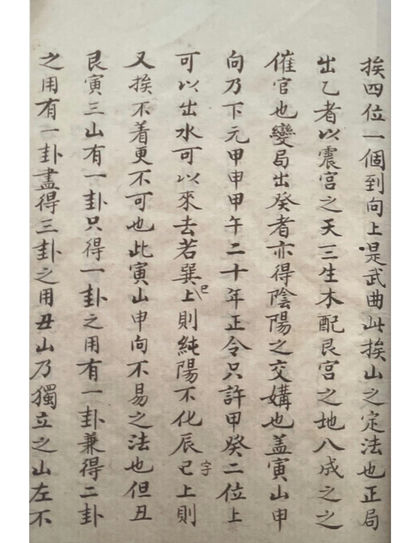 挨四位一個到向上是武曲此挨山之定法也正局
出乙者以震宮之天三生木配艮宮之地八成之之
催官也變局出癸者亦得陰陽之交媾也蓋寅山申
向乃下元甲申甲午二十年正令只許甲癸二位上
可以出水可以來去若巽上巳則純陽不化辰巳上字則
又挨不着更不可也此寅山申向不易之法也但丑
艮寅三山有一卦只得一卦之用有一卦兼得二卦
之用有一卦盡得三卦之用丑山乃獨立之山左不